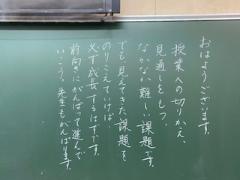 おはようございます。
授業への切りかえ、
見通しをもつ、
なかなか難しい課題です。
でも見えてきた課題を
のりこえていけば、
必ず成長するはずです。
前向きにがんばって進んで
いこう。先生もがんばります。